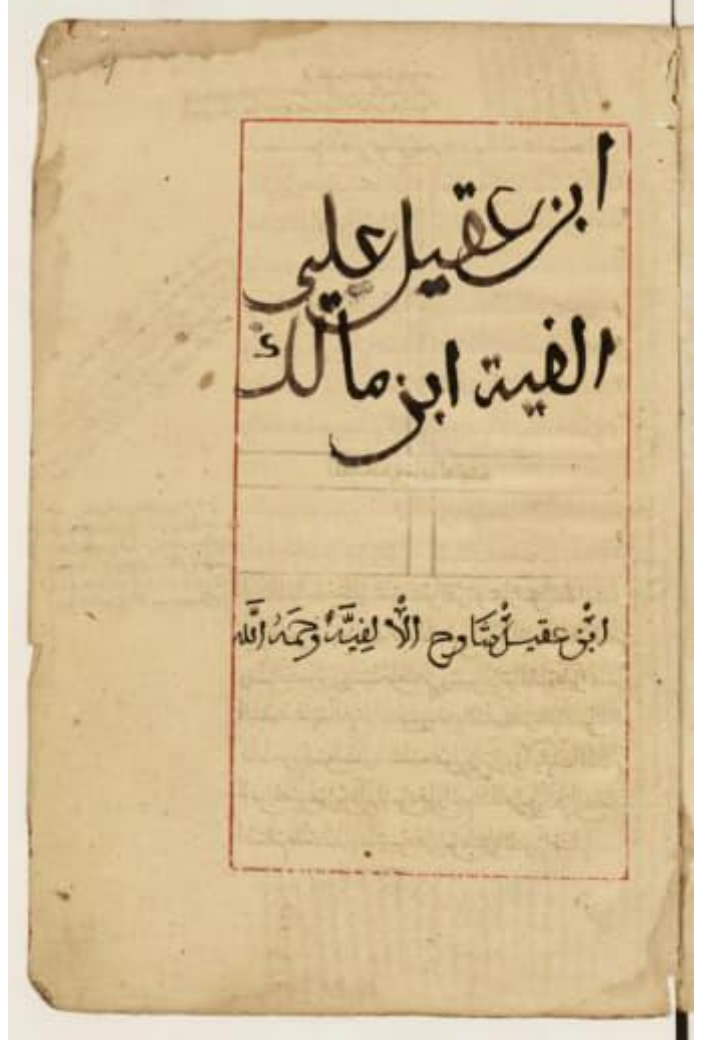 ابن عقيل على
الفية ابن مالك
ابن عقيل شارح الالفيَّة رحمَه اللَّه